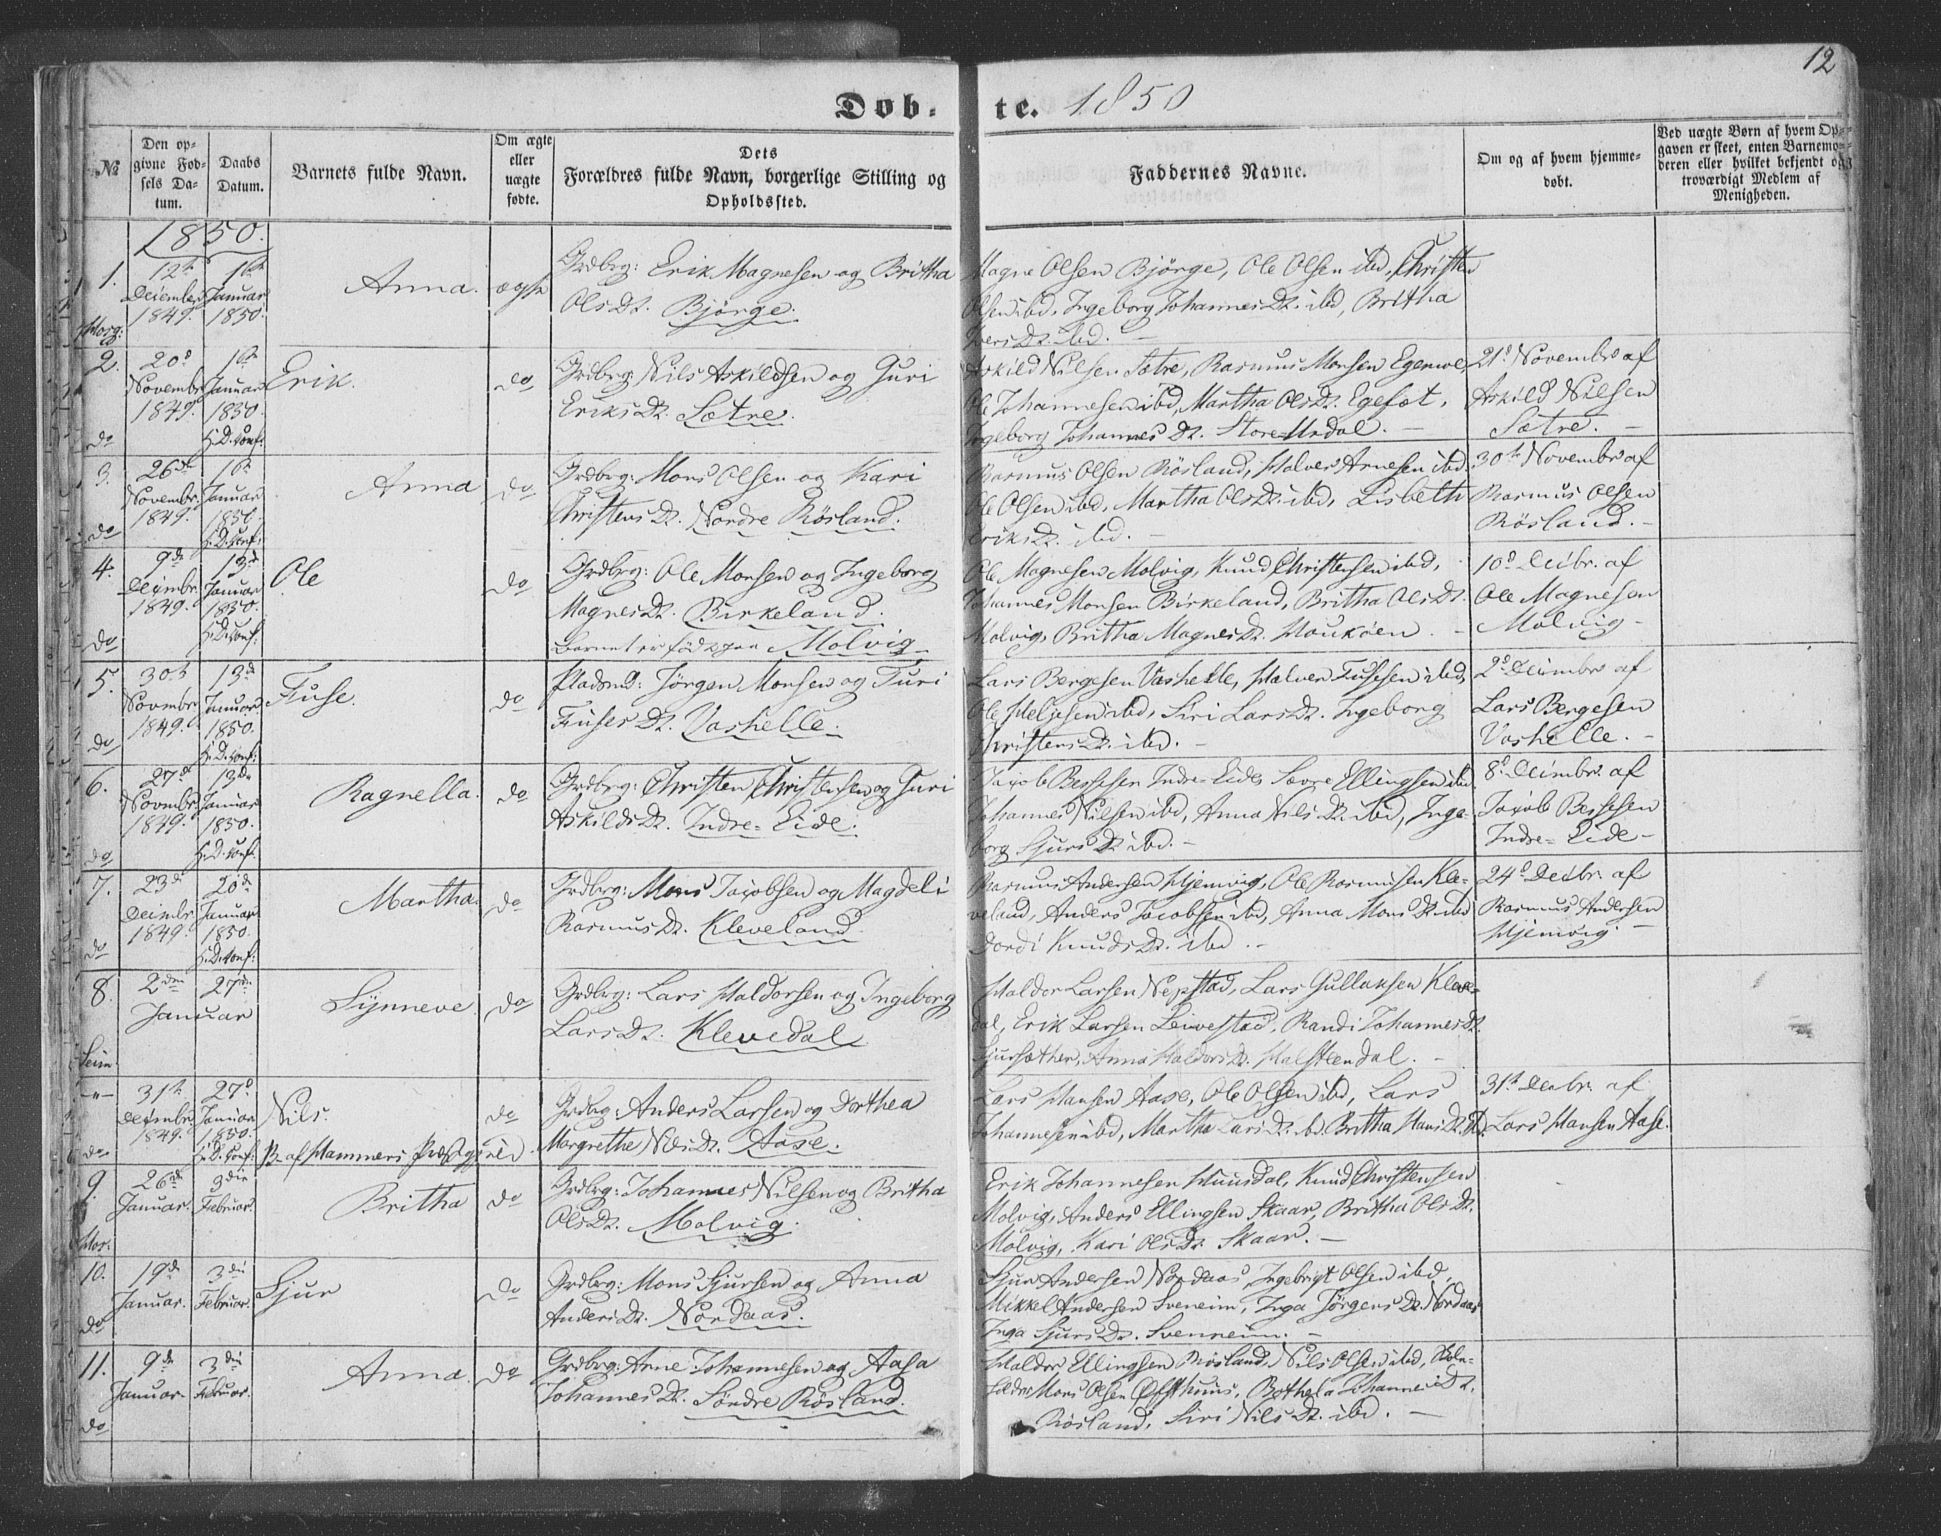 12
Døb- te. 1850
№
Den op-
givne Fød-
sels Da-
tum.
Daabs
Datum.
Barnets fulde Navn.
Om ægte
eller
uægte
fødte.
Dets
Forældres fulde Navn, borgerlige Stilling og
Opholdssted.
Faddernes Navne.
Om og af hvem hjemme-
døbt.
Ved uægte Børn af hvem Op-
gaven er skeet, enten Barnemo-
deren eller hvilket bekjendt og
troværdigt Medlem af
Menigheden.
1850.
1.
12te
Decembr
1849.
1ste
Januar
1850.
Anna.
ægte
Grdbrg: Erik Magnesen og Britha
Ols Dt. Bjørge.
Magne Olsen Bjørge, Ole Olsen ibd, Christen
Olsen ibd, Ingeborg Johannes Dt. ibd, Britha
Ivers Dt. ibd. –
2.
do
20d
Novembr
1849.
1ste
Januar
1850.
H. D. Conf:
Erik.
do
Grdbrg: Nils Askildsen og Guri
Eriks Dt. Sætre.
Askild Nilsen Sætre, Rasmus Monsen
Ole Johannesen ibd, Martha Ols Dt.
Ingeborg Johannes Dt. Store-Urdal. –
21d Novembr af
Askild Nilsen
Sætre. –
3.
do
26de
Novembr.
1849.
1ste
Januar
1850
H. D. Conf:
Anna
do
Grdbrg: Mons Olsen og Kari
Christens Dt. Nordre Røsland.
Rasmus Olsen Røsland, Halver Arnesen ibd.
Ole Olsen ibd, Martha Ols Dt. ibd, Lisbeth
Eriks Dt. ibd. –
30te Novembr af
Rasmus Olsen
Røsland. –
4.
do
9de
Decembr.
1849.
13de
Januar
1850.
H. D. Conf:
Ole
do
Grdbrg: Ole Monsen og Ingeborg
Magnes Dt. Birkeland.
Barnet er født paa Molvig
Ole Magnesen Molvig, Knud Christensen ibd,
Johannes Monsen Birkeland, Britha Ols Dt.
Molvig, Britha Magnes Dt. Haukøen. –
10d Decbr. af
Ole Magnesen
Molvig –
5.
do
30te
Novembr
1849.
13de
Januar
1850.
H. D. Conf:
Fuse.
do
Pladsmd: Jørgen Monsen og Turi
Fuses Dt. Vashelle.
Lars Bergesen Vashelle, Halver Fusesen ibd,
Ole Heljesen ibd, Siri Lars Dt. Ingeborg
Christens Dt. ibd. –
2d Decembr af
Lars Bergesen
Vashelle. –
6.
do
27de
Novembr
1849.
13de
Januar
1850.
H. D. Conf:
Ragnella.
do
Grdbrg: Christen Christensen og Guri
Askilds Dt. Indre-Eide.
Jacob Bessesen Indre-Eide, Sævre Ellingsen ibd.
Johannes Nilsen ibd, Anna Nils Dt. ibd, Inge-
borg Sjurs Dt. ibd. –
8d Decembr. af
Jacob Bessesen
Indre-Eide –
7.
do
23de
Decembr.
1849.
20de
Januar
1850.
H. D. Conf:
Martha.
do
Grdbrg: Mons Jacobsen og Magdeli
Rasmus Dt. Kleveland.
Rasmus Andersen Hjemvig, Ole Rasmusen Kle-
veland, Anders Jacobsen ibd, Anna Mons Dt. ibd
Dordi Knuds Dt. ibd. –
24d Decbr. af
Rasmus Andersen
Hjemvig. –
8.
Seim
2den
Januar
27de
Synneve
do
Grdbrg: Lars Haldorsen og Ingeborg
Lars Dt. Klevedal
Haldor Larsen Nepstad, Lars Gullaksen Kleve-
dal, Erik Larsen Leivestad, Randi Johannes Dt.
Sjursæther, Anna Haldors Dt. Halsteendal. –
–"–
do
31te
Decembr
1849.
27d
Januar
1850.
H. D. Conf:
Nils.
B. af Hammers Præstgjeld.
do
Grdbrg: Anders Larsen og Dorthea
Margrethe Nils Dt. Aase.
Lars Hansen Aase, Ole Olsen ibd, Lars
Johannesen ibd, Martha Lars Dt. ibd Britha Hans Dt. ibd.
31te Decbr. af
Lars Hansen Aase.
9.
Hor:
26de
Januar.
3die
Februar.
Britha
do
Grdbrg: Johannes Nilsen og Britha
Ols Dt. Molvig.
Erik Johannesen Huusdal, Knud Christensen
Molvig, Anders Ellingsen Skaar, Britha Ols Dt.
Molvig, Kari Ols Dt. Skaar. –
10.
do
19de
Januar.
3die
Februar.
Sjur
do
Grdbrg: Mons Sjursen og Anna
Anders Dt. Nordaas.
Sjur Andersen Nordaas, Ingebrigt Olsen ibd,
Mikkel Andersen Sveneim, Inga Jørgens Dt. Nordaas
Inga Sjurs Dt. Svenneim. –
11.
do
9de
Januar
3die
Februar.
Anna.
do
Grdbrg: Arne Johannesen og Aasa
Johannes Dt. Søndre Røsland.
Haldor Ellingsen Røsland, Nils Olsen ibd, Skole-
holder Mons Olsen Øfsthuus, Bothela Johannes Dt.
Røsland, Siri Nils Dt. ibd. –